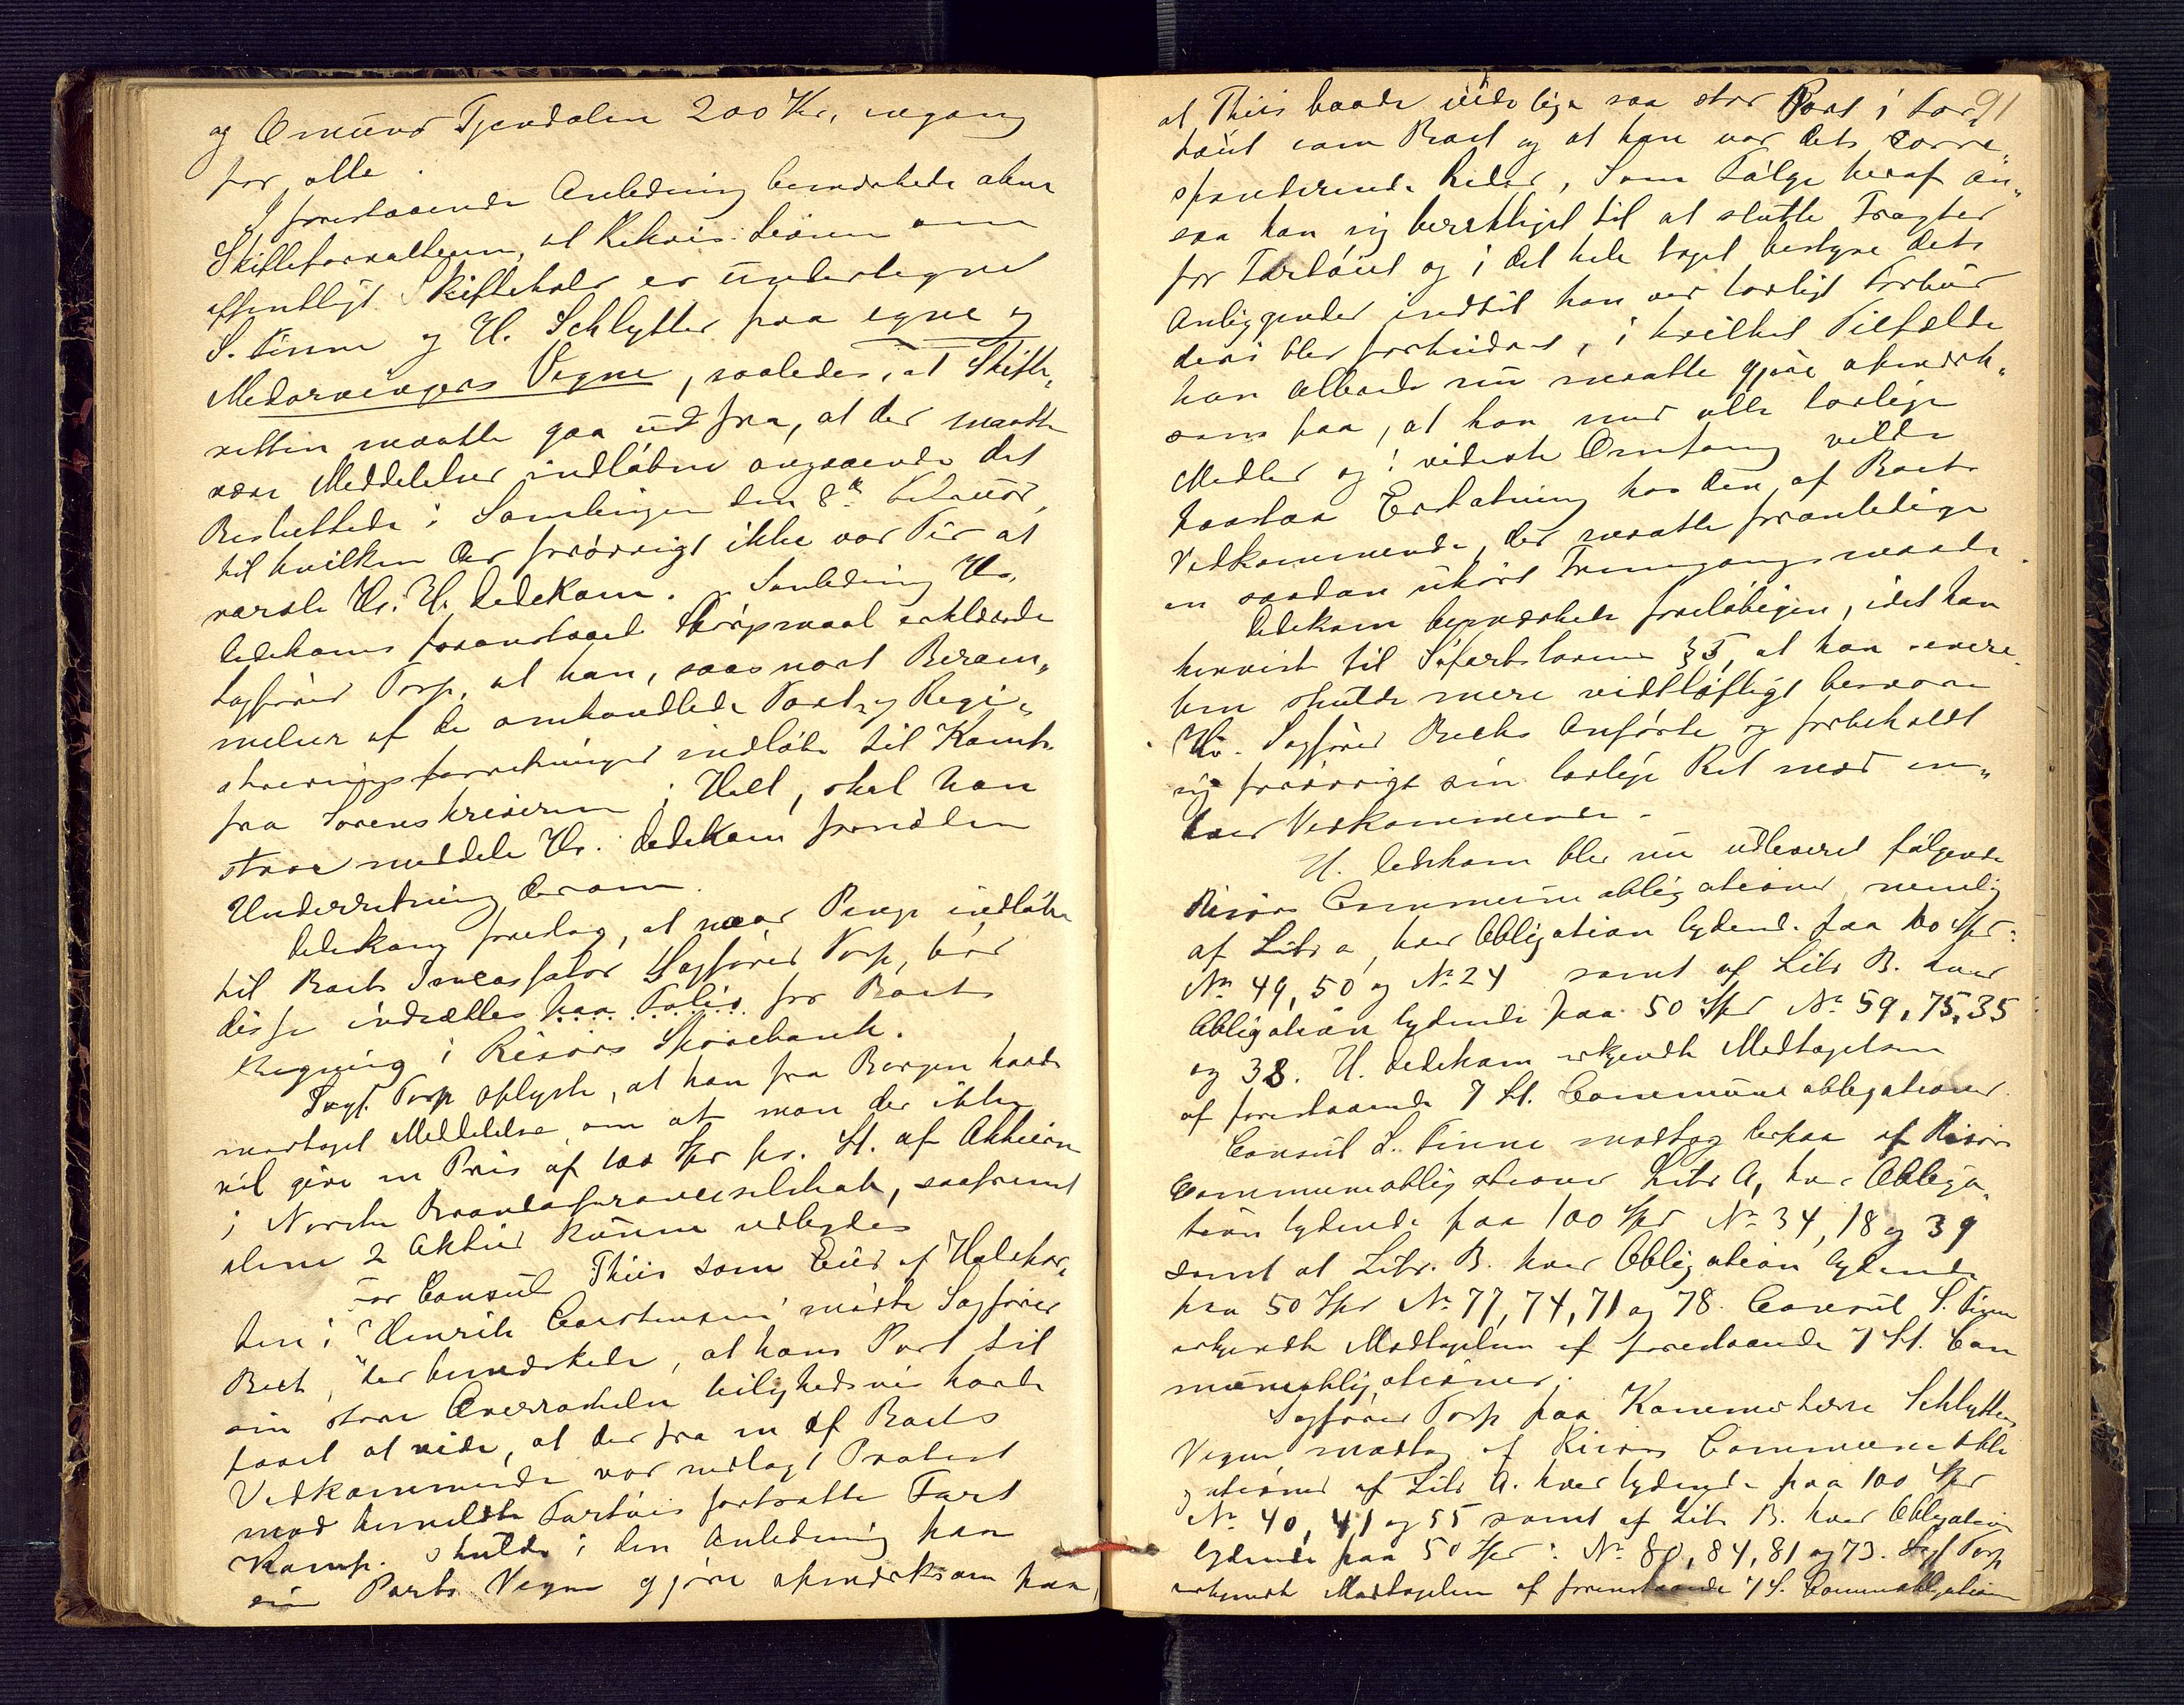 og Omund Tjendalen 200 Kr, engang
for alle.
I forestaaende Anledning bemærkede
Skifteforvalteren, at Rekvisitionen om
offentligt Skiftehold er undertegnet
S. Finne og H. Schlytter paa egne og
Medarvingers Vegne, saaledes, at Skifte„
retten maatte gaa ud fra, at der maatte
være Meddelelser indløbne angaaende det
Besluttede i Samlingen den 8de Februar,
til hvilken der forøvrigt ikke var Tid at
varsle Hr. H. Dedekam. I Anledning Hr.
Dedekams foranstaaende Spørgsmaal erklærede
Sagfører Torp, at han, saasnart Beram„
melser af de omhandlede Taxt og Regi„
streringsforretninger indløbe til ham
fra Sorenskriveren i Holt, skal han
strax meddele Hr. Dedekam fornøden
Underretning derom.
Dedekam foreslog, at naar Penge indløbe
til Boets Incassator Sagfører Torp, bør
disse indsættes paa Folio for Boets
Regning i Risørs Sparebank.
Sagf. Torp oplyste, at han fra Bergen havde
modtaget Meddelelse om at man der ikke
vil give en Pris af 100 Spd pr. St. af Aktierne
i Norske Brandassuranceselskab, saafremt
disse 2 Aktier kunne udbydes
For Consul Thiis som Eier af Halvpar„
ten i "Henrik Carstensen" mødte Sagfører
Beck, der bemærkede, at hans Part til
sin store Overraskelse leilighedsvis havde
faaet at vide, at der fra en af Boets
Vedkommende var nedlagt Protest
mod bemeldte Fartøis fortsatte Fart
Komp. skulde i den Anledning paa
sin Parts Vegne gjøre opmærksom paa,
91
at Thiis havde ligesaa stor Part i Far„
tøiet som Boet og at han var dets corre„
sponderende Reder, Som Følge heraf an„
saa han sig berettiget til at slutte Fragter
for Fartøiet og i det hele taget bestyre dets
Anliggender indtil han ved lovligt Forbud
deri blev forhindret, i hvilket Tilfælde
han allerede nu maatte gjøre opmærk„
som paa, at han med alle lovlige
Midler og i videste Omfang vilde
paastaa Erstatning hos den af Boets
Vedkommende, der maatte foranledige
en saadan uhørt Fremgangsmaade.
Dedekam bemærkede foreløbigen, idet han
henviste til Søfartslovens § 5, at han senere
hen skulde mere vidtløftigt besvare
Hr. Sagfører Becks Anførte og forbeholdt
sig forøvrigt sin lovlige Ret mod en„
hver Vedkommende.
H. Dedekam blev nu udleveret følgende
Risørs Communeobligationer nemlig
af Litr a, hver Obligation lydende paa 100 Spd:
No 49, 50 og No 24 samt af Litr B. hver
Obligation lydende paa 50 Spd No 59, 75, 35
og 38. H. Dedekam erkjendte Modtagelsen
af forestaaende 7 St. Communeobligationer.
Consul S. Finne modtog derpaa af Risørs
Communeobligationer Litr A, hver Obliga„
tion lydende paa 100 Spd No 34, 18 og 39
samt af Litr. B. hver Obligation lydende
paa 50 Spd No 77, 74, 71 og 78. Consul S. Finne
erkjendte Modtagelsen af forestaaende 7 St. Com
muneobligationer.
Sagfører Torp paa Kammerherre Schlytters
Vegne modtog af Risørs Communeobli
gationer af Litr A. hver lydende paa 100 Spd
No 40, 41 og 55 samt af Litr B. hver Obligation
lydende paa 50 Spd: No 80, 84, 81 og 73. Sagf Torp
erkjendte Modtagelsen af forenstaaende 7 St. Commobligationer